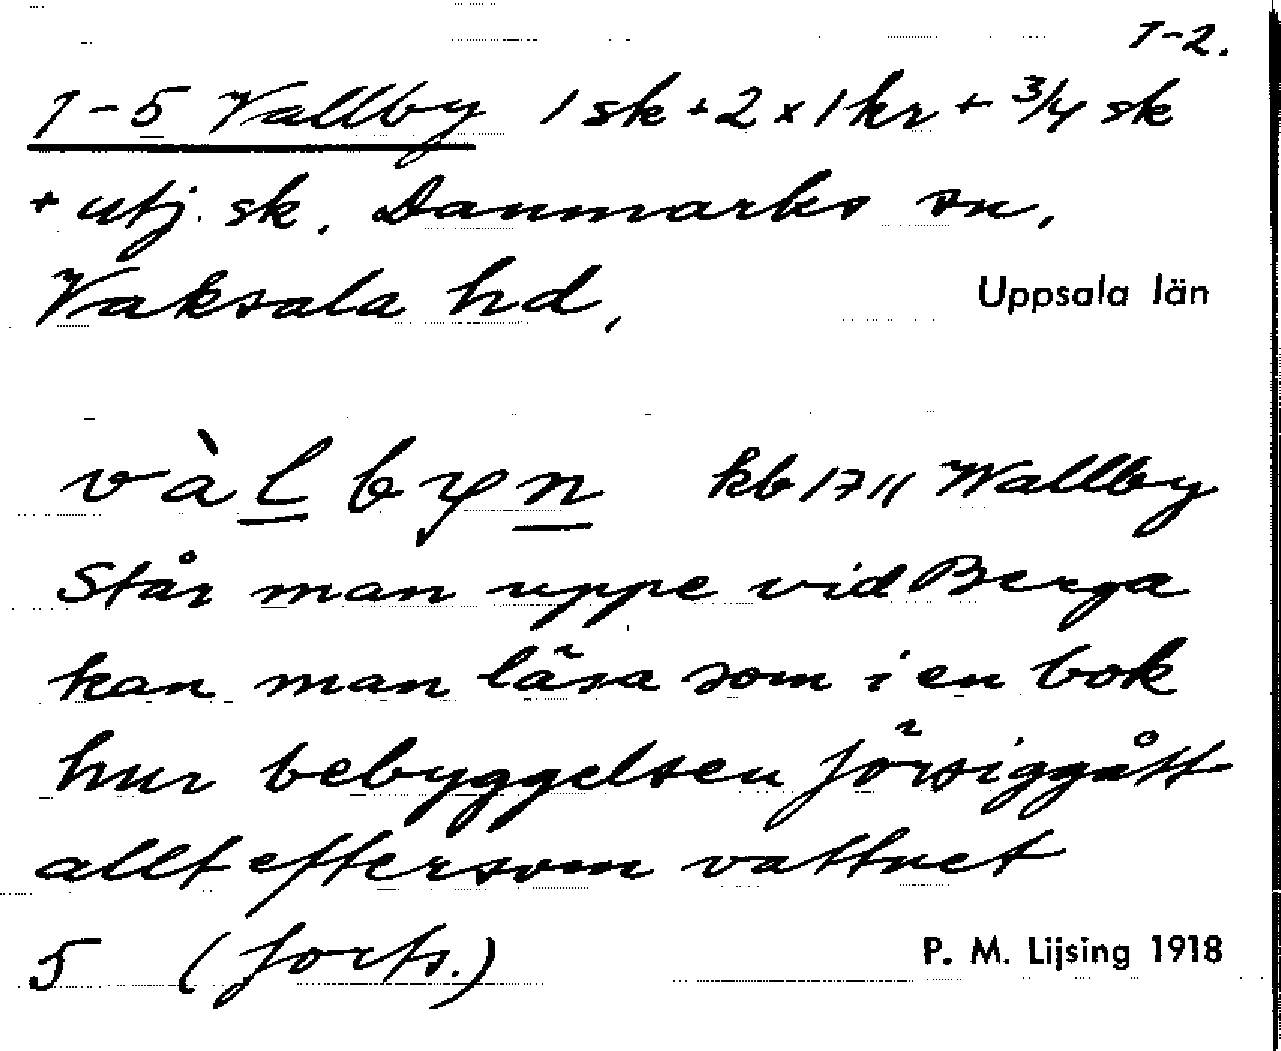 1-2.
1-5 Vallby 1 sk + 2 x 1 kr + 3/4 sk
+ utj. sk. Danmarks sn,
Vaksala hd,
Uppsala län
vàlbyn kb 1711 Wallby
Står man uppe vid Berga
kan man läsa som i en bok
hur bebyggelsen försiggått
allt eftersom vattnet
5 (forts.)
P. M. Lijsing 1918